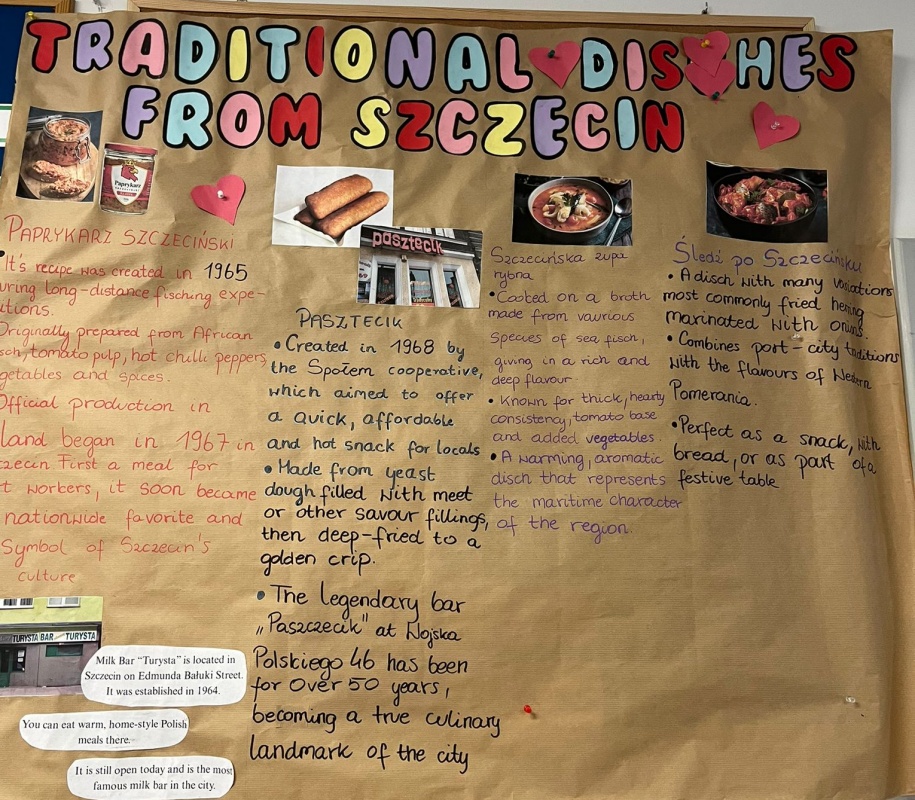 TRADITIONAL DISHES
FROM SZCZECIN
Paprykarz
PAPRYKARZ SZCZECIŃSKI
• It's recipe was created in 1965
uring long-distance fisching expe-
itions.
Originally prepared from African
sch, tomato pulp, hot chilli peppers,
getables and spices.
Official production in
land began in 1967 in
zecin First a meal for
t workers, it soon became
nationwide favorite and
Symbol of Szczecin's
culture
TURYSTA BAR TURYSTA
Milk Bar “Turysta” is located in
Szczecin on Edmunda Bałuki Street.
It was established in 1964.
You can eat warm, home-style Polish
meals there.
It is still open today and is the most
famous milk bar in the city.
pasztecik
PASZTECIK
• Created in 1968 by
the Społem cooperative,
which aimed to offer
a quick, affordable
and hot snack for locals
• Made from yeast
dough filled with meet
or other savour fillings,
then deep-fried to a
golden crip.
• The legendary bar
„Paszczecik" at Wojska
Polskiego 46 has been
for over 50 years,
becoming a true culinary
landmark of the city
Szczecińska zupa
rybna
• Cooked on a broth
made from vaurious
species of sea fisch,
giving in a rich and
deep flavour.
• Known for thick, hearty
consistency, tomato base
and added vegetables.
• A warming, aromatic
disch that represents
the maritime character
of the region.
Śledź po Szczecińsku
• A disch with many variations
most commonly fried hering
marinated with onins
• Combines port-city traditions
with the flavours of Western
Pomerania.
• Perfect as a snack, with
bread, or as part of a
festive table